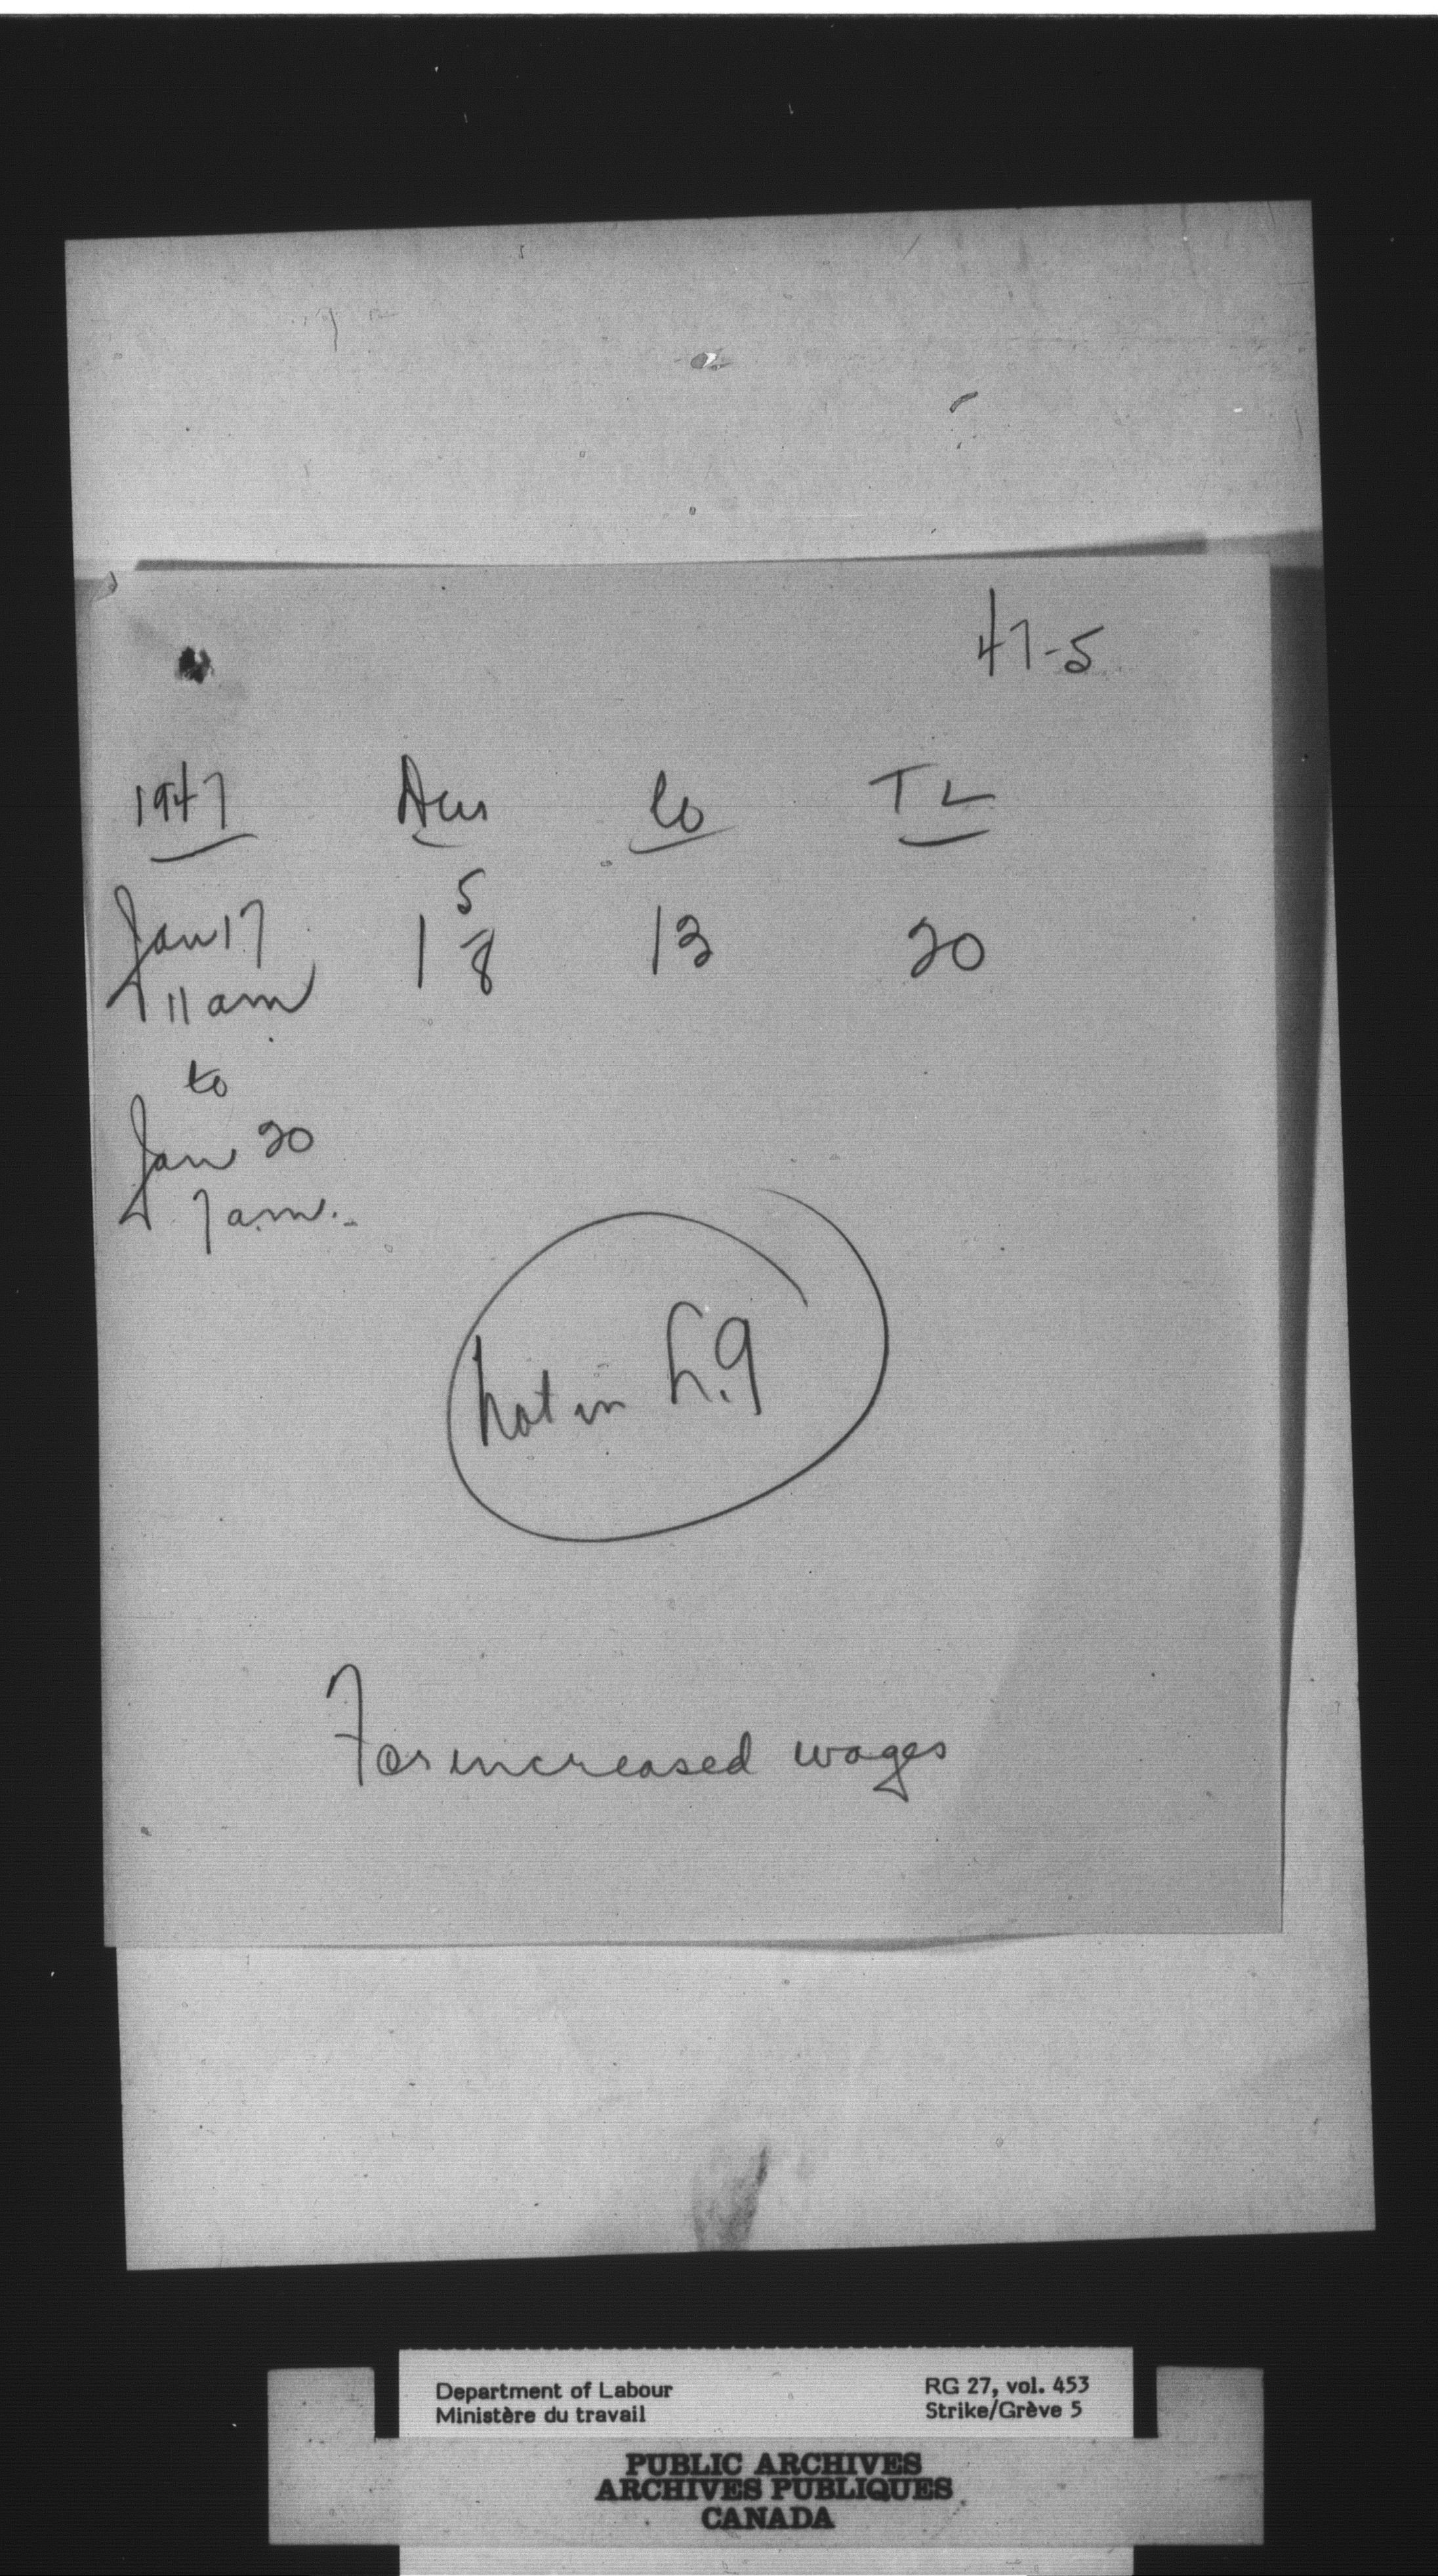 47-5
1947 Dur Co TL
Jan 17 1 5/8 13 20
11 am
to
Jan 20
7 a.m.
Not in L.G
For increased wages
Department of Labour RG 27, vol. 453
Ministère du travail Strike/Grève 5
PUBLIC ARCHIVES
ARCHIVES PUBLIQUES
CANADA